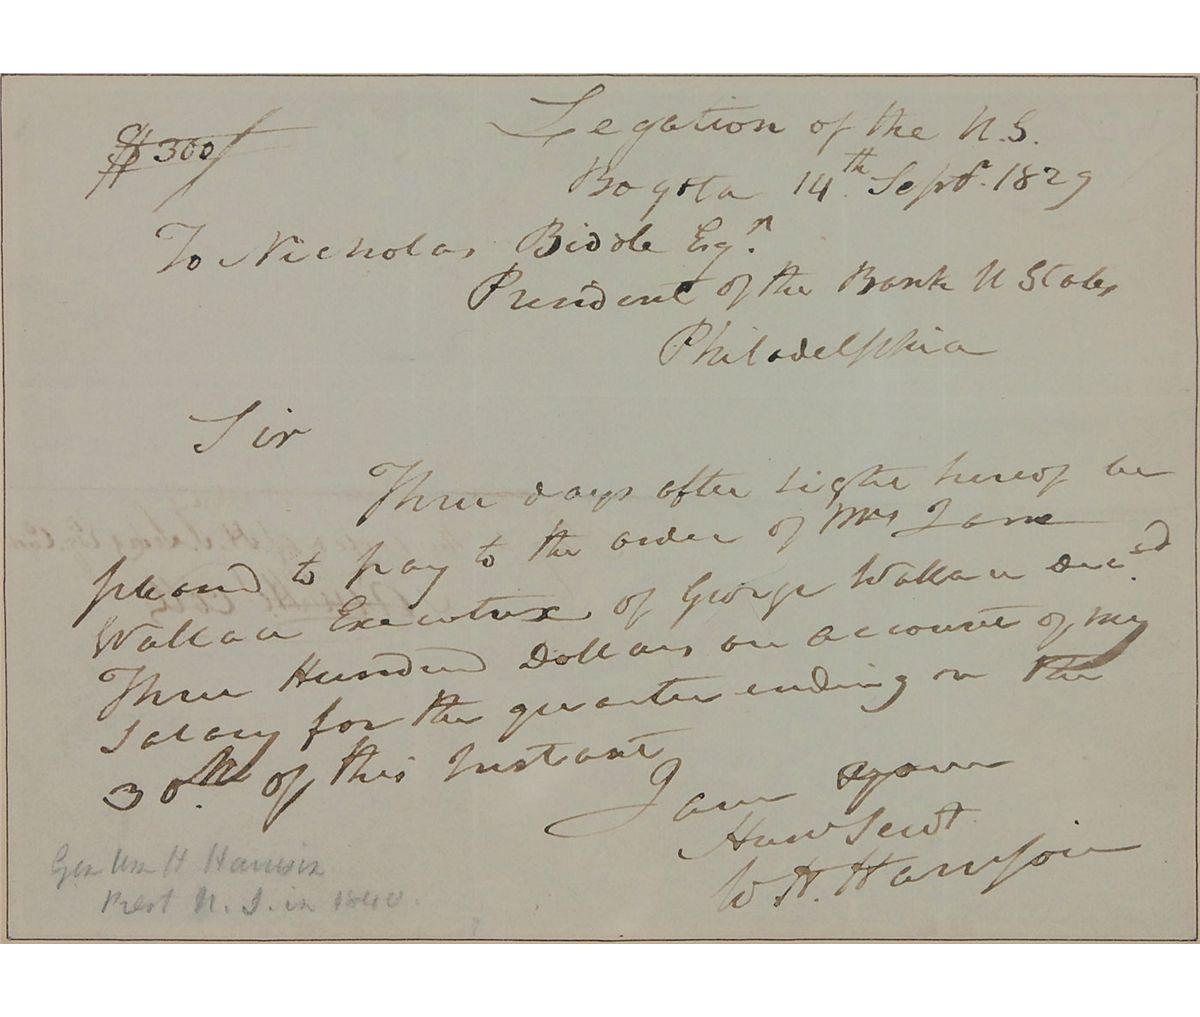 $300
Legation of the U.S.
Bogota 14th Septr. 1829
To Nicholas Biddle Esqr.
President of the Bank U States
Philadelphia
Sir
Three days after sight hereof be
pleased to pay to the order of Mrs Jane
Wallace Executrix of George Wallace Decsd
Three Hundred Dollars on account of my
salary for the quarter ending on the
30th of this Instant
I am yours
Humb Sevt
W H. Harrison
Gen Wm H Harrison
Prest U. S. in 1840.